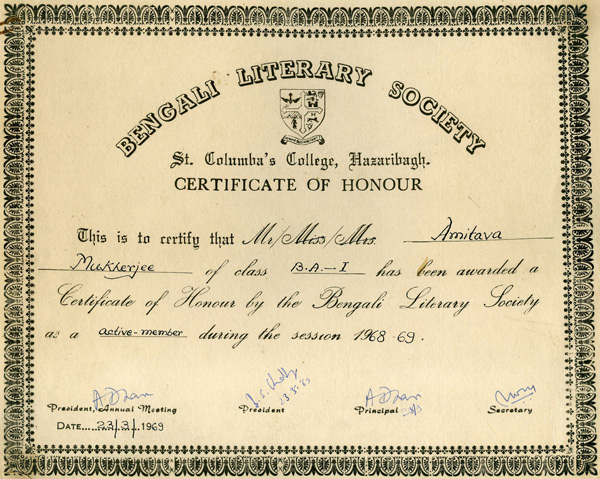 BENGALI LITERARY SOCIETY
St. Columba's College, Hazaribagh.
CERTIFICATE OF HONOUR
This is to certify that Mr/Miss/Mrs. Amitava
Mukherjee of class B.A-I has been awarded a
Certificate of Honour by the Bengali Literary Society
as a active-member during the session 1968-69.
President, Annual Meeting President Principal Secretary
DATE....23/3/1969